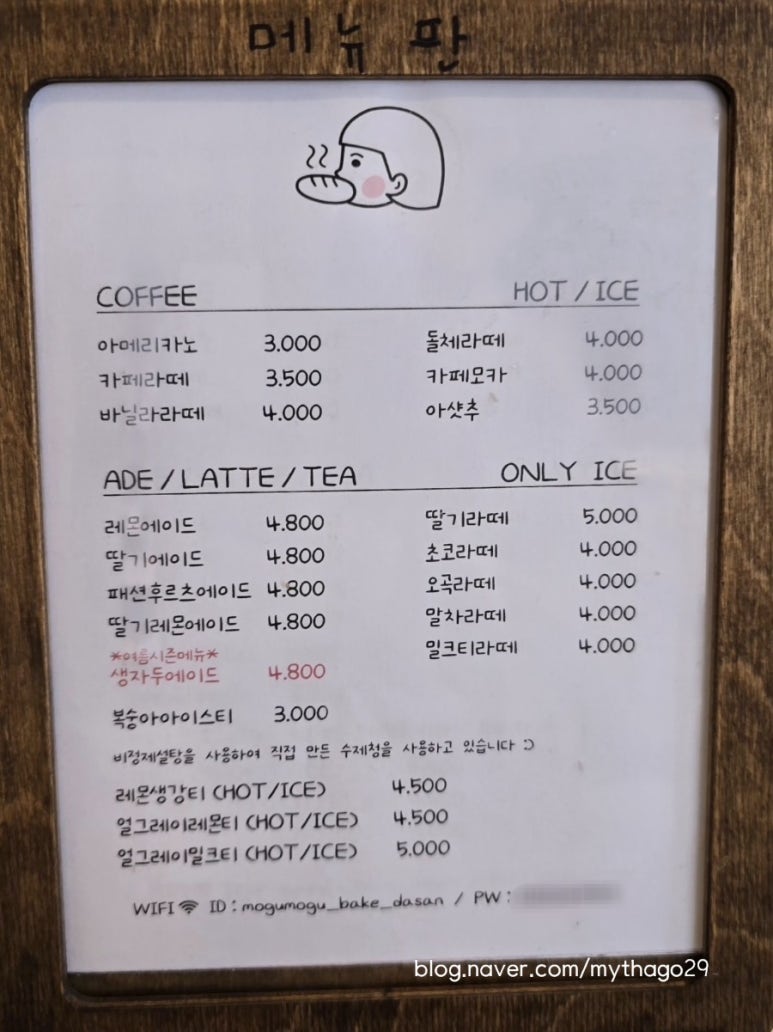 메뉴판
COFFEE HOT / ICE
아메리카노 3.000 돌체라떼 4.000
카페라떼 3.500 카페모카 4.000
바닐라라떼 4.000 아샷추 3.500
ADE / LATTE / TEA ONLY ICE
레몬에이드 4.800 딸기라떼 5.000
딸기에이드 4.800 초코라떼 4.000
패션후르츠에이드 4.800 오곡라떼 4.000
딸기레몬에이드 4.800 말차라떼 4.000
*여름시즌메뉴* 밀크티라떼 4.000
생자두에이드 4.800
복숭아아이스티 3.000
비정제설탕을 사용하여 직접 만든 수제청을 사용하고 있습니다 :)
레몬생강티 (HOT/ICE) 4.500
얼그레이레몬티 (HOT/ICE) 4.500
얼그레이밀크티 (HOT/ICE) 5.000
WIFI ID : mogumogu_bake_dasan / PW :
blog.naver.com/mythago29